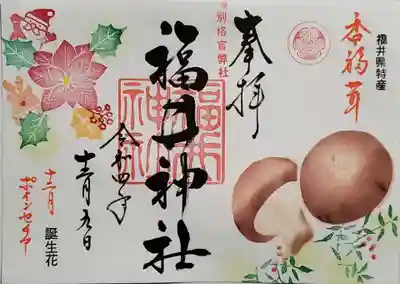 福井県特産
香福茸
奉拝
旧別格官弊社
福井神社
福井神社
令和四年
十二月
誕生花
十二月
ポインセチア